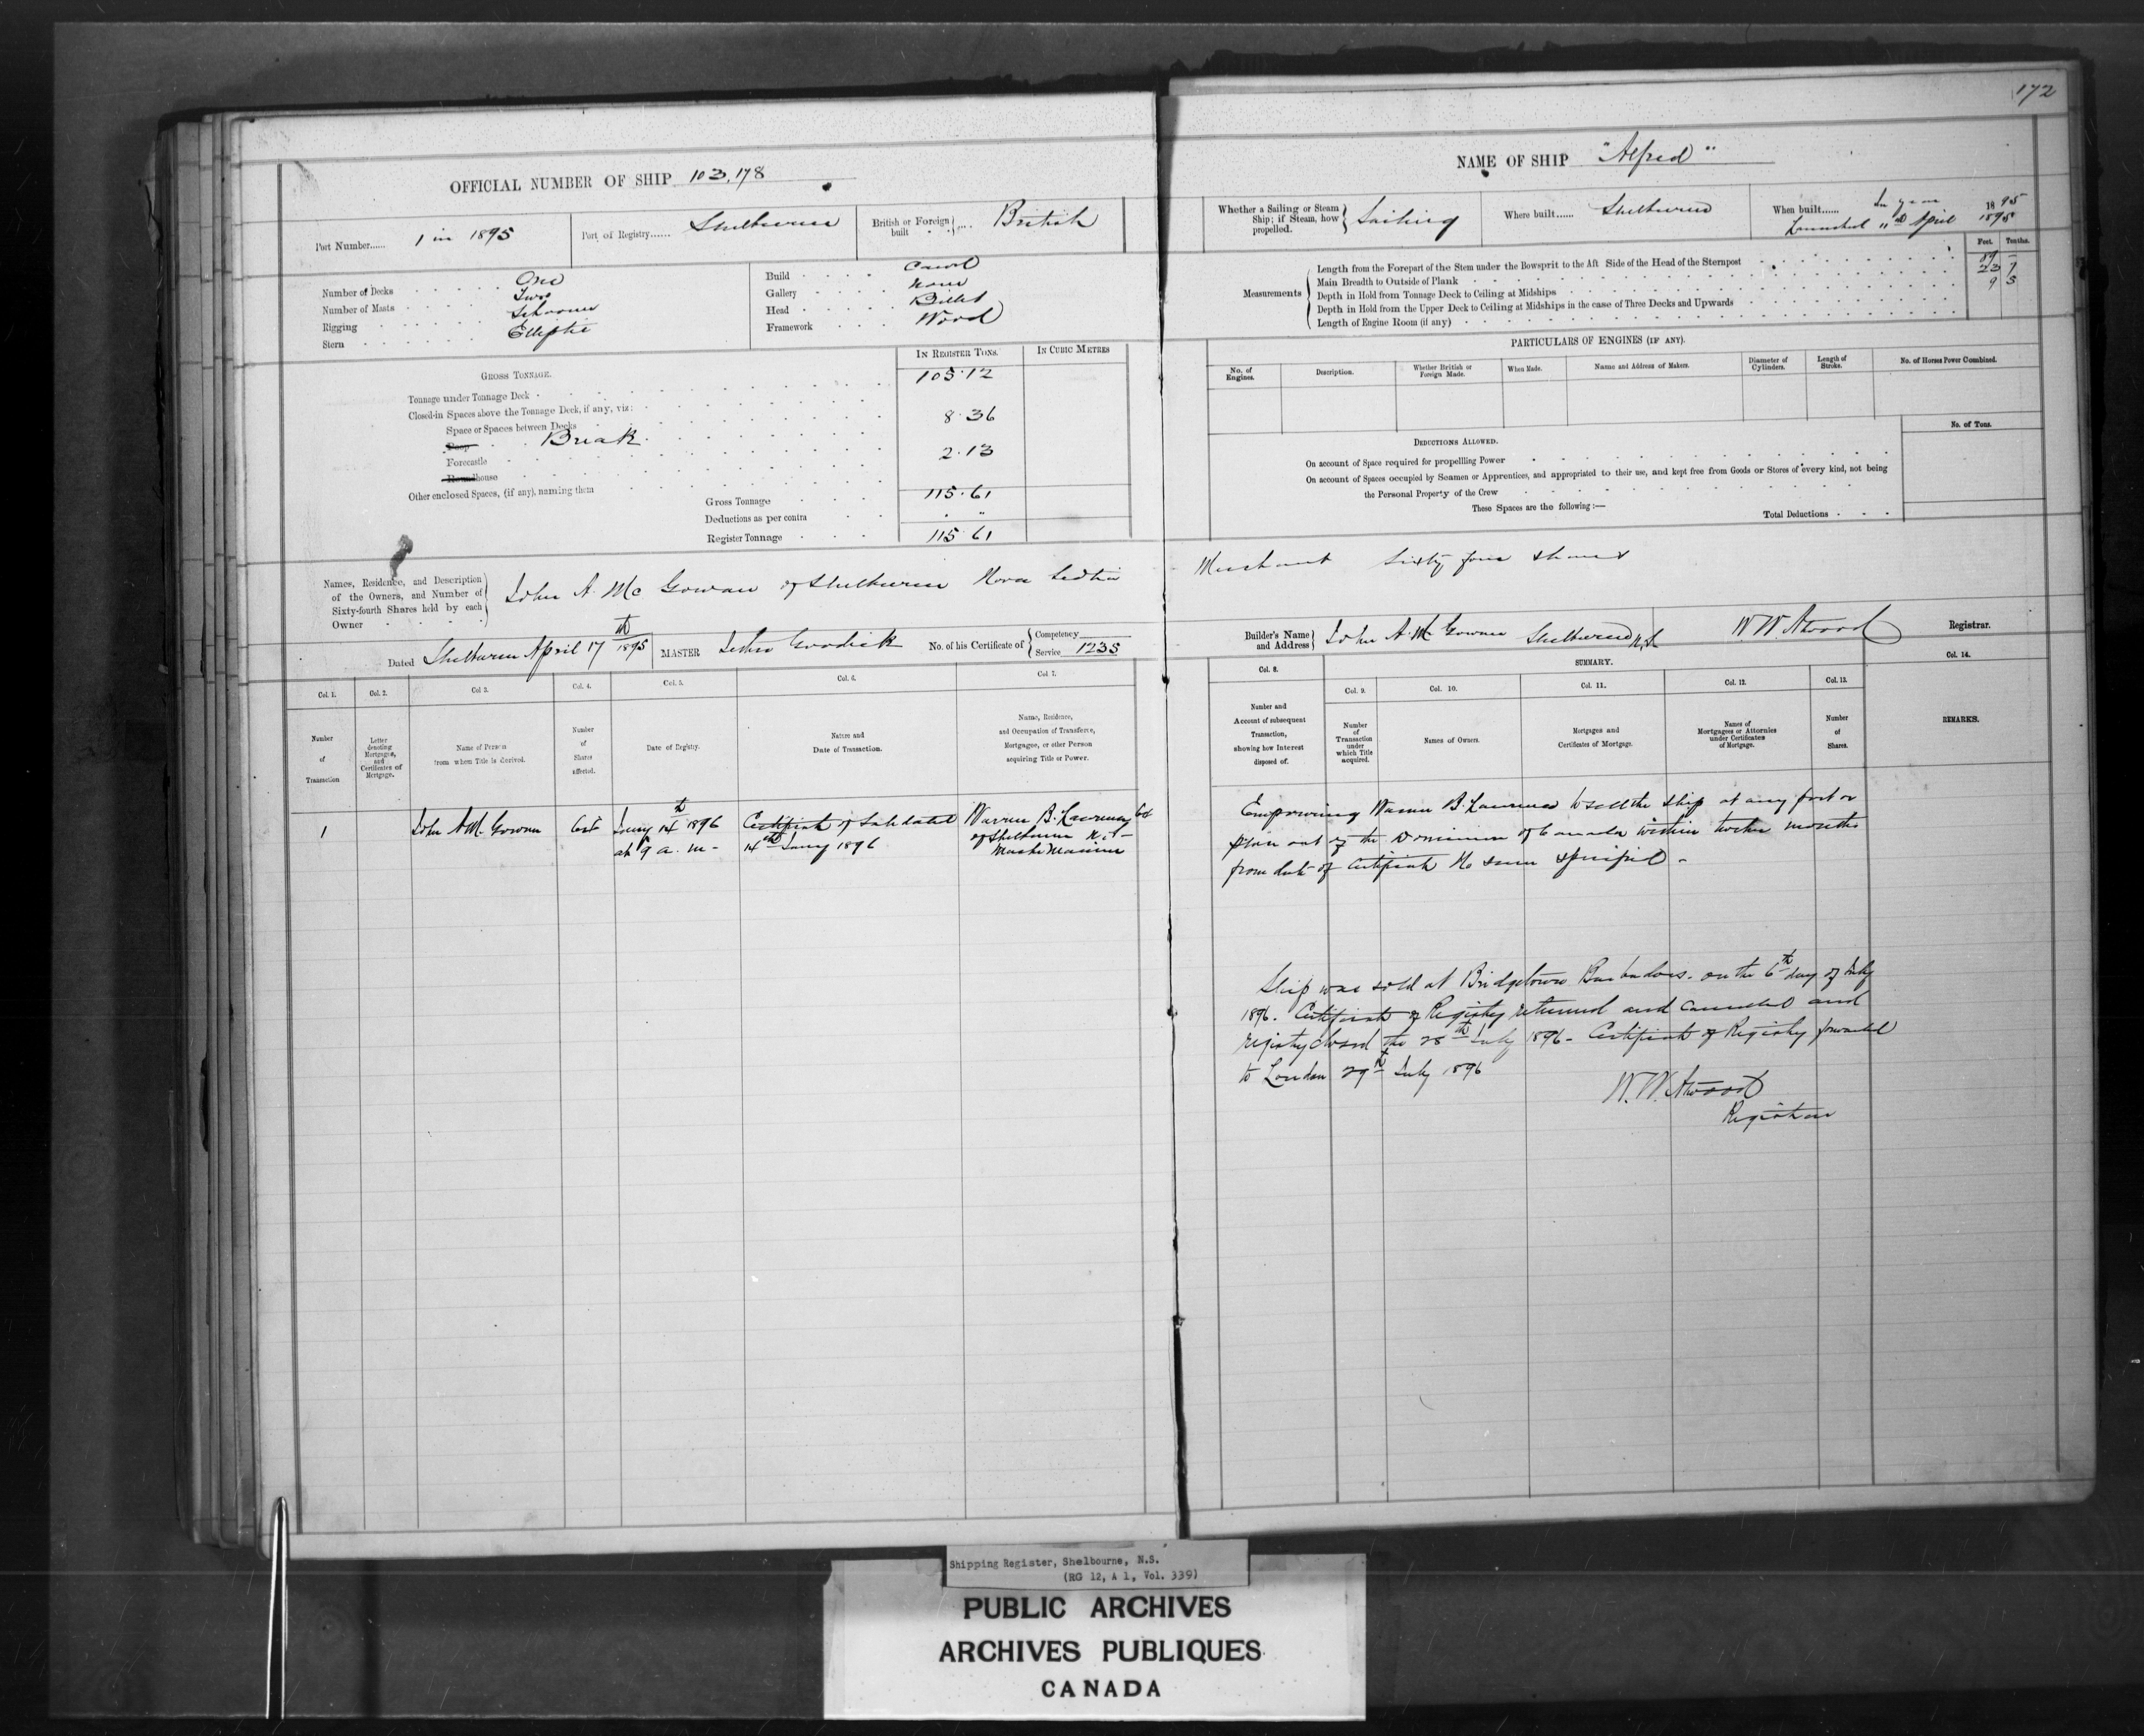 172
OFFICIAL NUMBER OF SHIP 103,178
NAME OF SHIP "Alfred"
Port Number...... 1 in 1895
Port of Registry...... Shelburne
British or Foreign built .... British
Whether a Sailing or Steam Ship; if Steam, how propelled. Sailing
Where built...... Shelburne
When built...... In year 1895
Launched April 1895
Number of Decks One
Number of Masts Two
Rigging Schooner
Stern Elliptic
Build Carvel
Gallery None
Head Billet
Framework Wood
Measurements
Feet. Tenths.
Length from the Forepart of the Stem under the Bowsprit to the Aft Side of the Head of the Sternpost 89 -
Main Breadth to Outside of Plank 23 9
Depth in Hold from Tonnage Deck to Ceiling at Midships 9 3
Depth in Hold from the Upper Deck to Ceiling at Midships in the case of Three Decks and Upwards
Length of Engine Room (if any)
GROSS TONNAGE.
IN REGISTER TONS.
IN CUBIC METRES
Tonnage under Tonnage Deck 105.12
Closed-in Spaces above the Tonnage Deck, if any, viz:
Space or Spaces between Decks
Poop Break 8.36
Forecastle
Roundhouse 2.13
Other enclosed Spaces, (if any), naming them
Gross Tonnage 115.61
Deductions as per contra
Register Tonnage 115.61
PARTICULARS OF ENGINES (IF ANY).
No. of Engines.
Description.
Whether British or Foreign Made.
When Made.
Name and Address of Makers.
Diameter of Cylinders.
Length of Stroke.
No. of Horses Power Combined.
DEDUCTIONS ALLOWED.
No. of Tons.
On account of Space required for propellling Power
On account of Spaces occupied by Seamen or Apprentices, and appropriated to their use, and kept free from Goods or Stores of every kind, not being
the Personal Property of the Crew
These Spaces are the following:—
Total Deductions
Names, Residence, and Description of the Owners, and Number of Sixty-fourth Shares held by each Owner
John A. McGowan of Shelburne Nova Scotia Merchant Sixty four shares
Dated Shelburne April 17th 1895
MASTER Goodick
No. of his Certificate of Competency
Service 1235
Builder's Name and Address John A. McGowan Shelburne N.S.
W W Atwood Registrar.
Col. 1.
Col. 2.
Col. 3.
Col. 4.
Col. 5.
Col. 6.
Col. 7.
Col. 8.
SUMMARY.
Col. 9.
Col. 10.
Col. 11.
Col. 12.
Col. 13.
Col. 14.
Number of Transaction
Letter denoting Mortgages, and Certificates of Mortgage.
Name of Person from whom Title is derived.
Number of Shares affected.
Date of Registry.
Nature and Date of Transaction.
Name, Residence, and Occupation of Transferee, Mortgagee, or other Person acquiring Title or Power.
Number and Account of subsequent Transaction, showing how Interest disposed of.
Number of Transaction under which Title acquired.
Names of Owners.
Mortgages and Certificates of Mortgage.
Names of Mortgagees or Attornies under Certificates of Mortgage.
Number of Shares.
REMARKS.
1
John A McGowan
Jany 14th 1896
at 9 a.m-
Certificate of Sale dated
14th Jany 1896
Warren B. Laurence
of Shelburne N.S-
Master Mariner
Empowering Warren B. Laurence to sell the Ship at any port or
place out of the Dominion of Canada within twelve months
from date of Certificate No sum specified -
Ship was sold at Bridgetown Barbadoes. on the 6th day of July
1896. Certificate of Registry returned and cancelled and
registry closed the 28th July 1896- Certificate of Registry forwarded
to London 29th July 1896
W. W. Atwood
Registrar
Shipping Register, Shelbourne, N.S.
(RG 12, A 1, Vol. 339)
PUBLIC ARCHIVES
ARCHIVES PUBLIQUES
CANADA